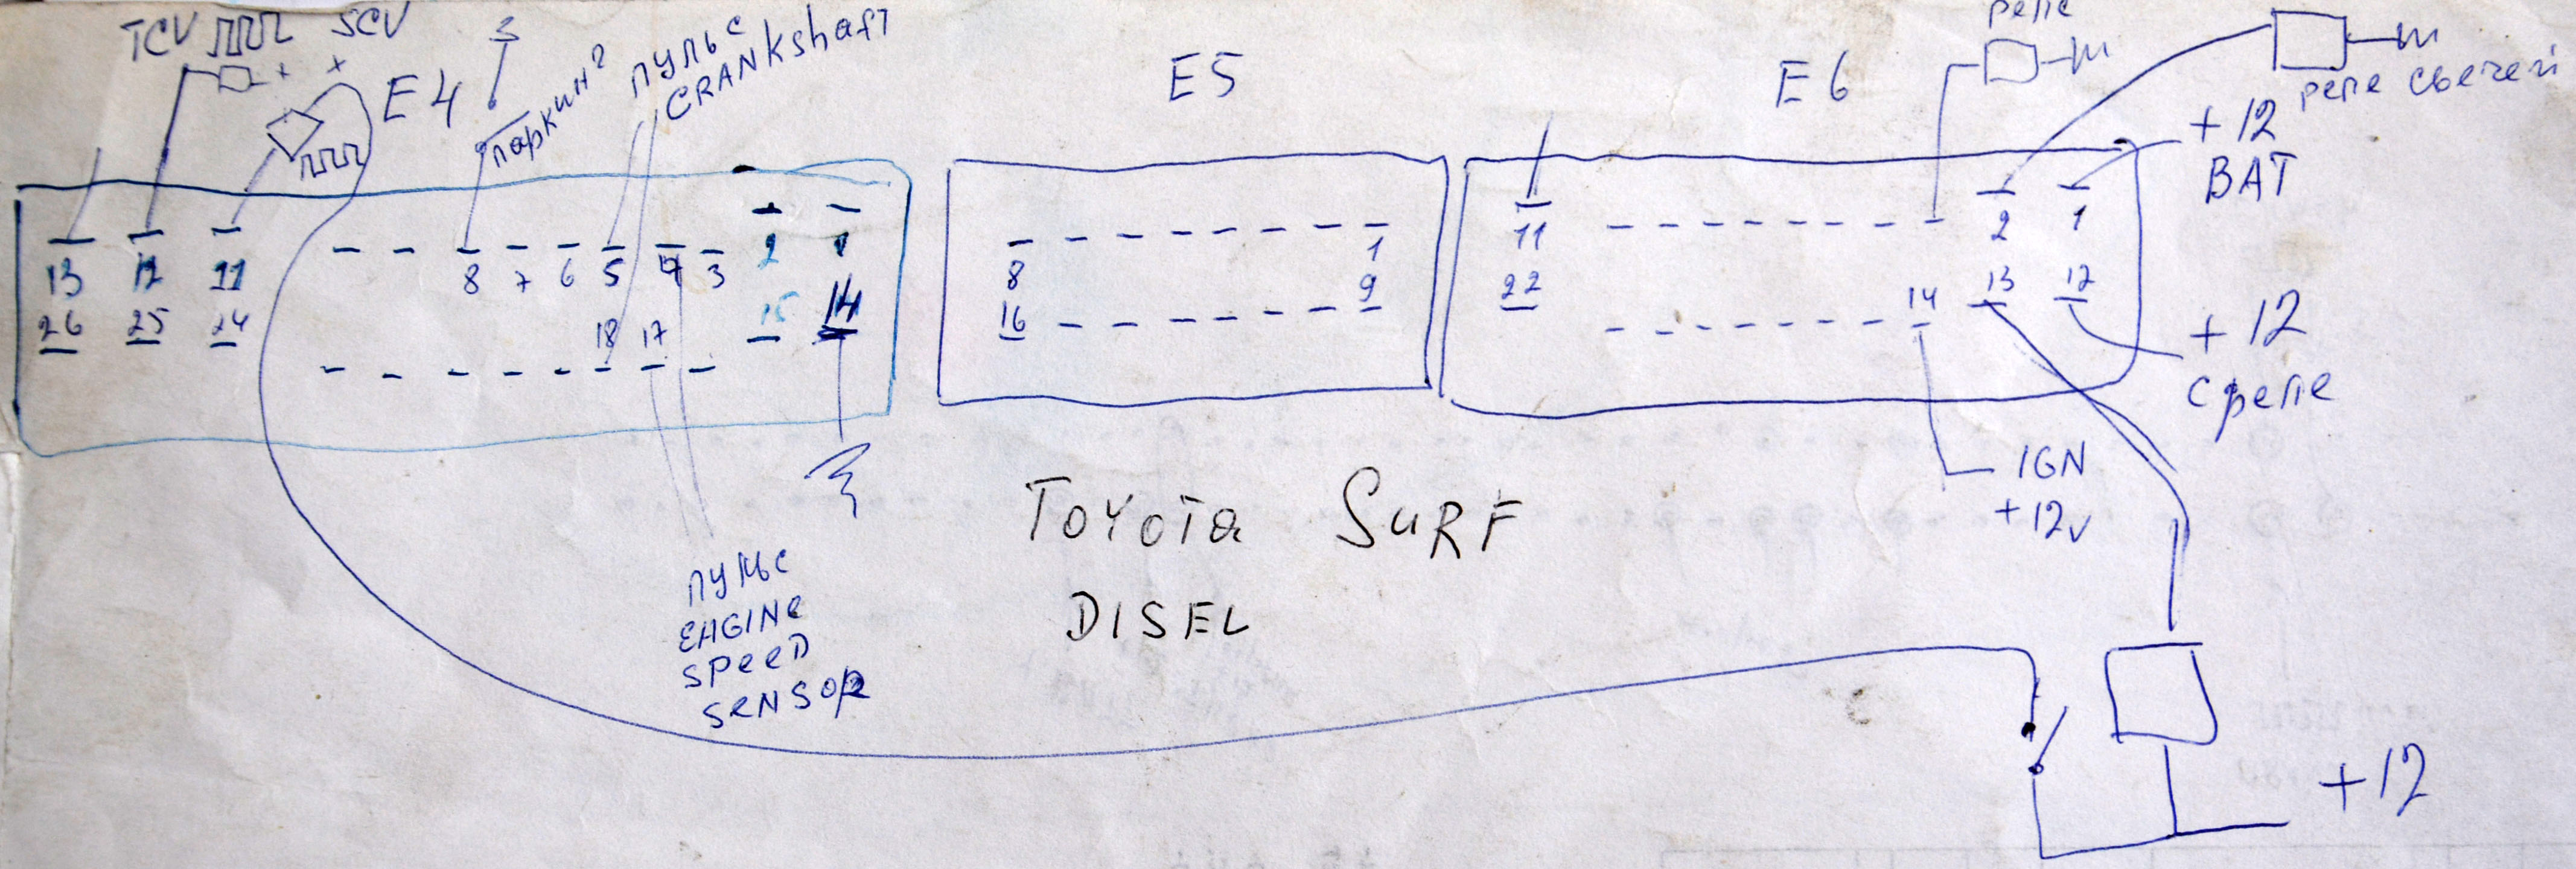 TCV SCV
E4
паркинг
пульс
CRANKshaft
E5
E6
реле
реле свечей
+12
BAT
13 12 11
8 7 6 5 4 3 2 1
26 25 24
18 17 15 14
8 1
16 9
11 2 1
22 14 13 12
+12
с реле
IGN
+12v
пульс
ENGINE
SPEED
SENSOR
TOYOTA SURF
DISEL
+12